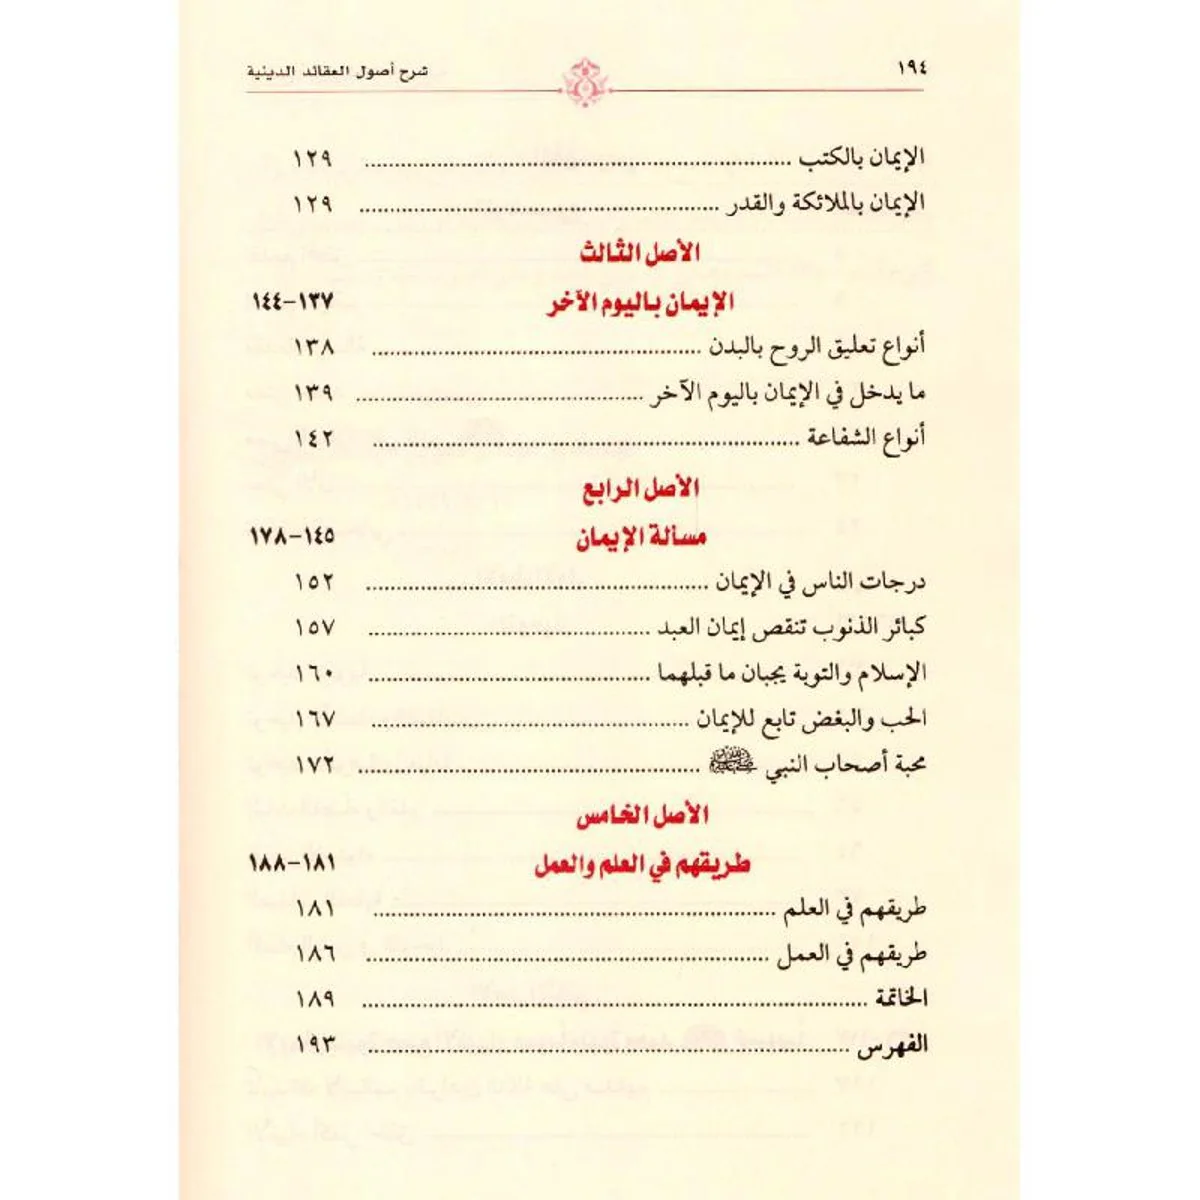 ١٩٤ شرح أصول العقائد الدينية
الإيمان بالكتب ١٢٩
الإيمان بالملائكة والقدر ١٢٩
الأصل الثالث
الإيمان باليوم الآخر ١٣٧-١٤٤
أنواع تعليق الروح بالبدن ١٣٨
ما يدخل في الإيمان باليوم الآخر ١٣٩
أنواع الشفاعة ١٤٢
الأصل الرابع
مسألة الإيمان ١٤٥-١٧٨
درجات الناس في الإيمان ١٥٢
كبائر الذنوب تنقص إيمان العبد ١٥٧
الإسلام والتوبة يجبان ما قبلهما ١٦٠
الحب والبغض تابع للإيمان ١٦٧
محبة أصحاب النبي ﷺ ١٧٢
الأصل الخامس
طريقهم في العلم والعمل ١٨١-١٨٨
طريقهم في العلم ١٨١
طريقهم في العمل ١٨٦
الخاتمة ١٨٩
الفهرس ١٩٣